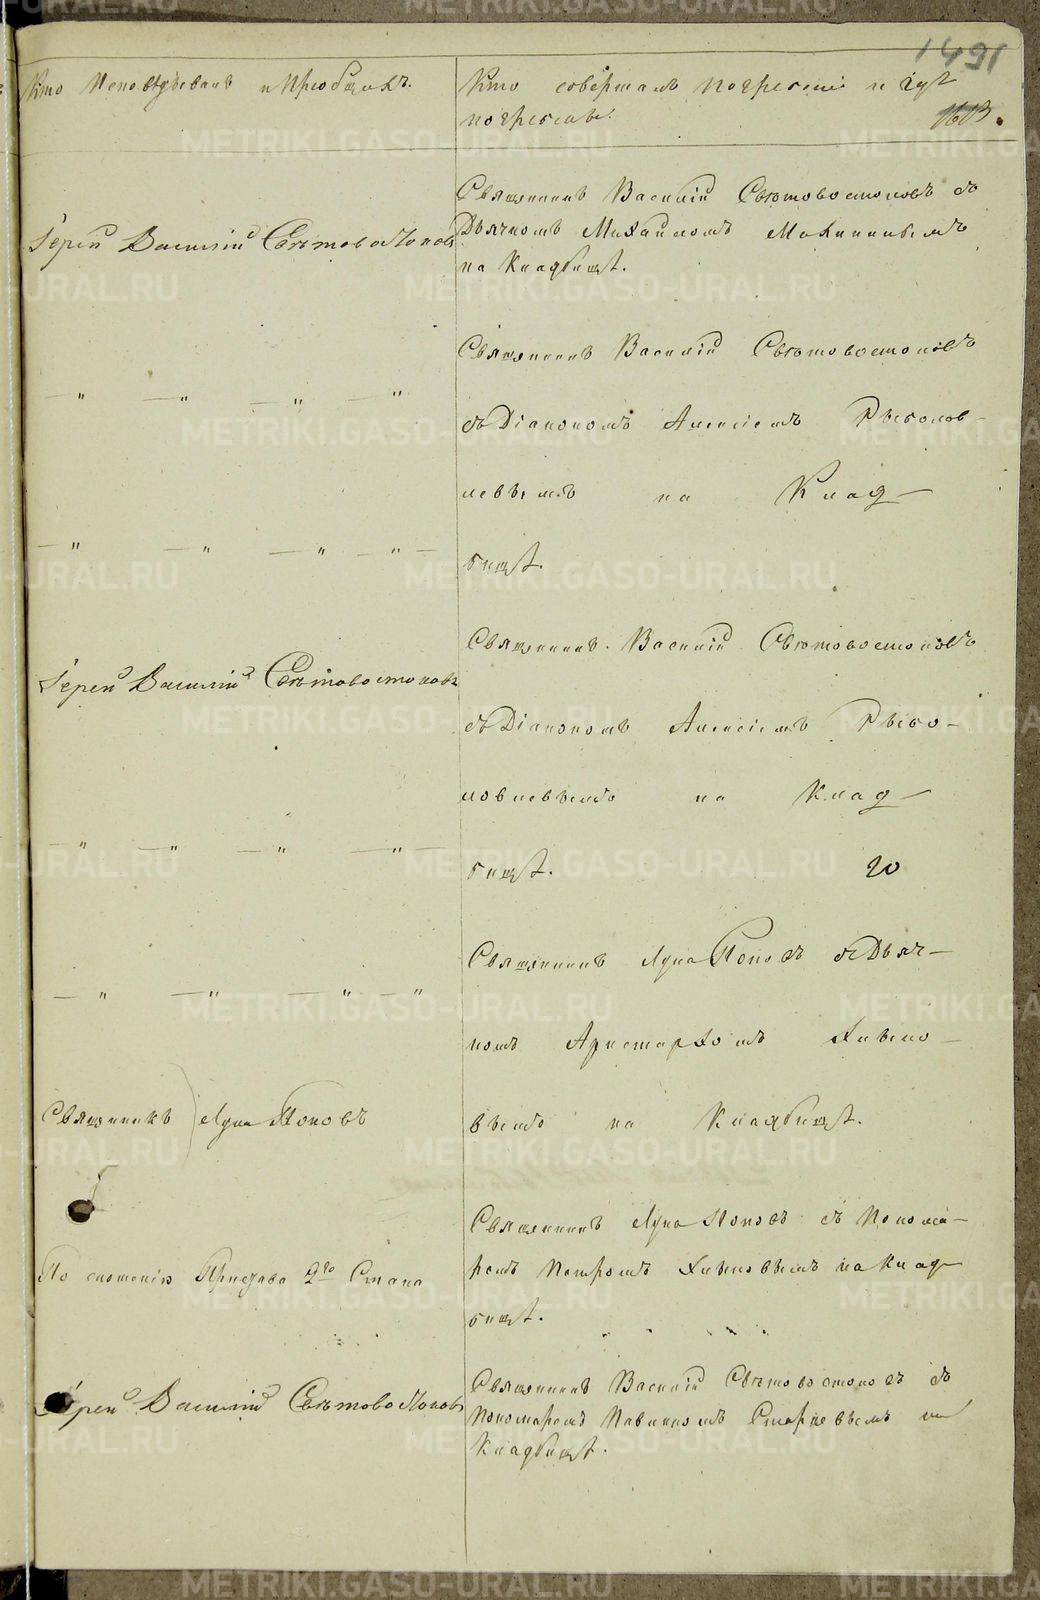 1491
1613.
Кто Исповѣдывалъ и Пріобщалъ.
Кто совершалъ погребеніе и гдѣ
погребены.
Іерей Василій Свѣтовостоковъ
Священникъ Василій Свѣтовостоковъ съ
Дьячкомъ Михаиломъ
на Кладбищѣ.
— " — " — " — "
Священникъ Василій Свѣтовостоковъ
съ Діакономъ Алексіемъ Рыболов-
левымъ на Клад-
— " — " — " — " —
бищѣ.
Іерей Василій Свѣтовостоковъ
Священникъ Василій Свѣтовостоковъ
съ Діакономъ Алексіемъ Рыбо-
ловлевымъ на Клад-
— " — " — " — " —
бищѣ. 20
— " — " — " — "
Священникъ Лука Поповъ съ Дьяч-
комъ Аристархомъ Хлыно-
Священникъ Лука Поповъ
вымъ на Кладбищѣ.
Священникъ Лука Поповъ съ Понома-
По сношенію Пристава 2го Стана
ремъ Петромъ Хлыновымъ на Клад-
бищѣ.
Іерей Василій Свѣтовостоковъ
Священникъ Василій Свѣтовостоковъ съ
Пономаремъ Павлиномъ Старцевымъ на
Кладбищѣ.
METRIKI.GASO-URAL.RU